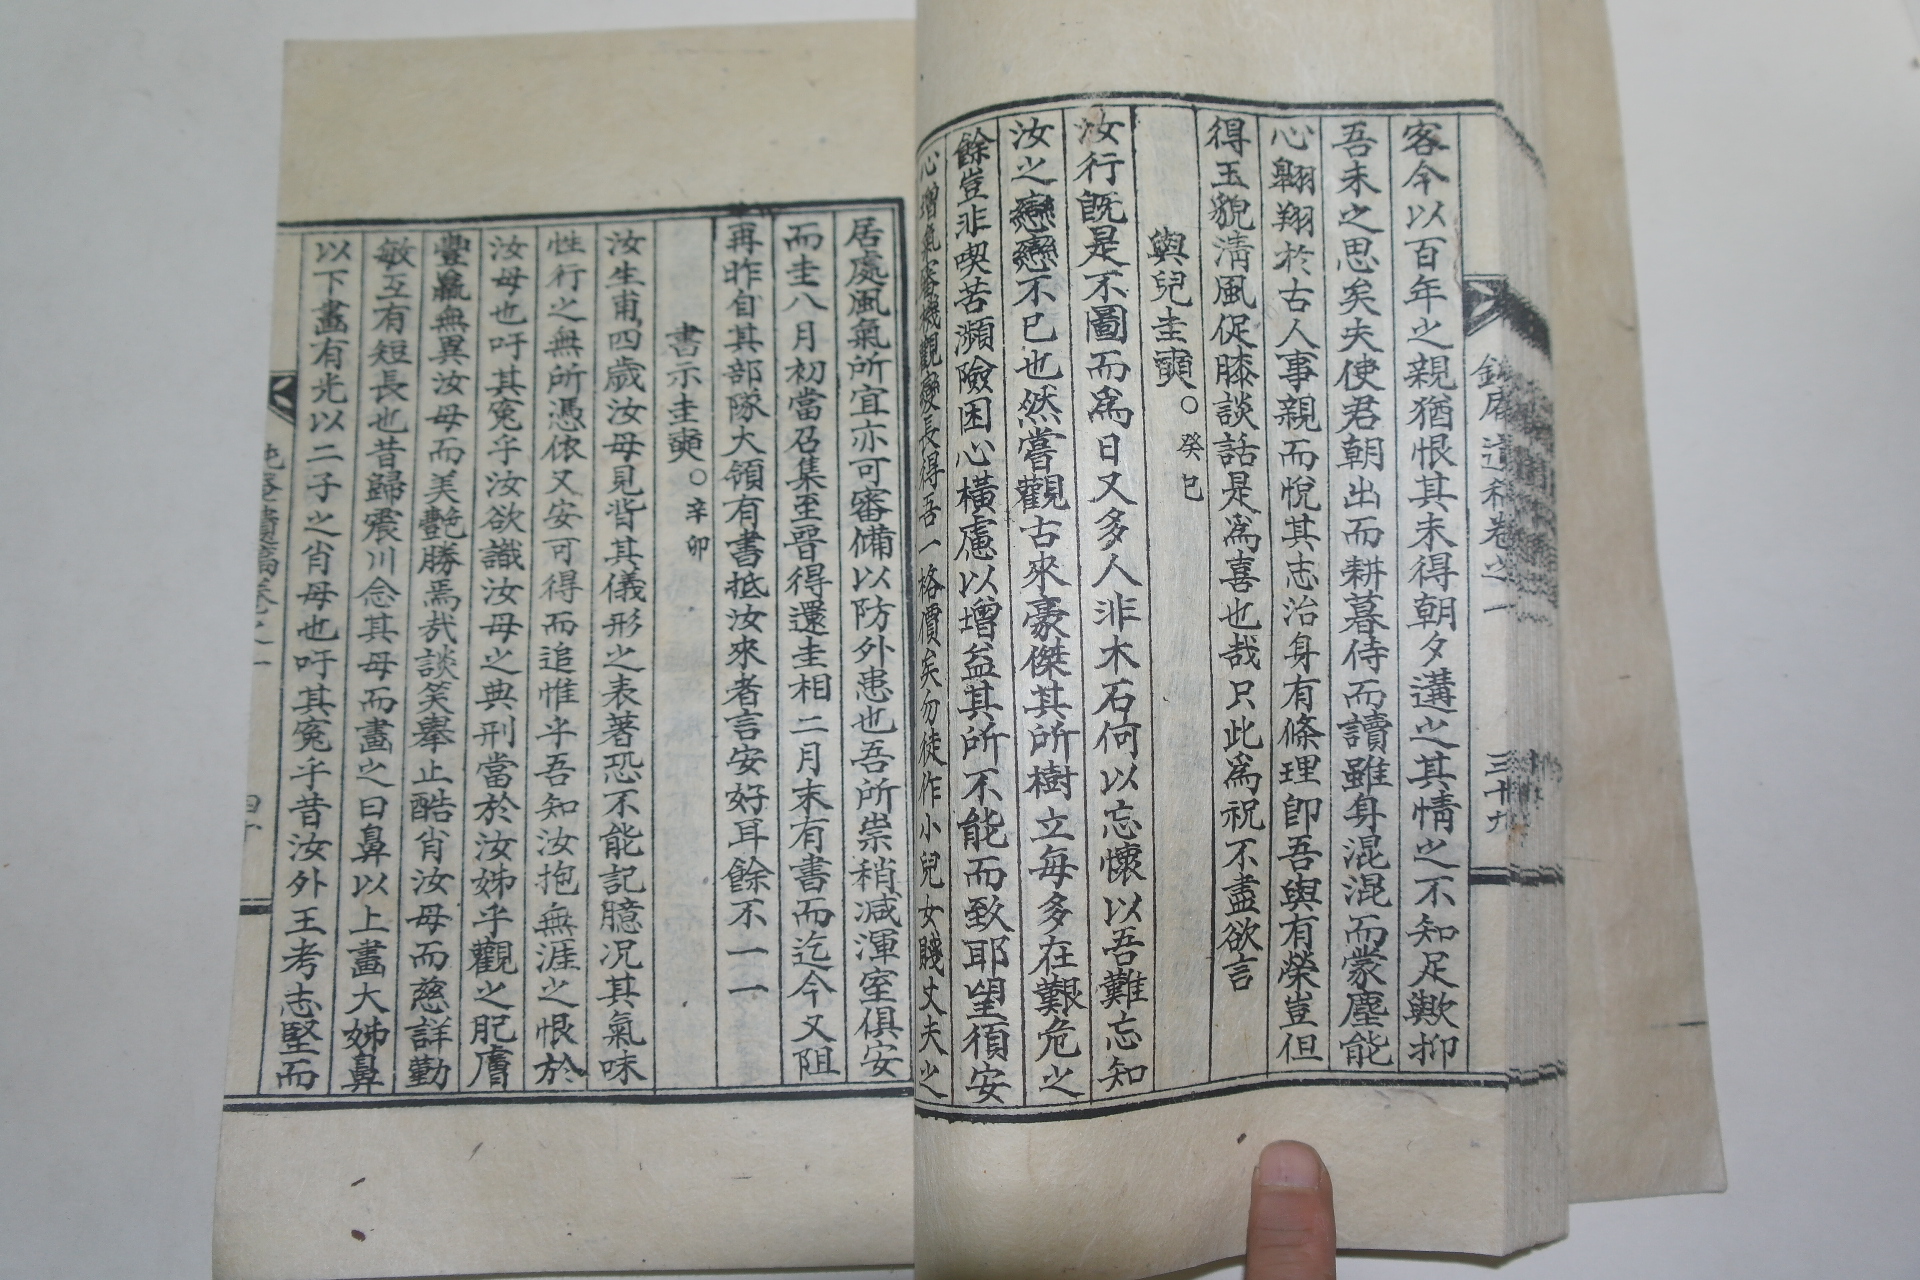 客今以百年之親猶恨其未得朝夕遘之其情之不知足歟抑
吾未之思矣夫使君朝出而耕暮侍而讀雖身混混而蒙塵能
心翺翔於古人事親而悅其志治身有條理卽吾與有榮豈但
得玉貌淸風促膝談話是爲喜也哉只此爲祝不盡欲言
與兒圭奭○癸巳
汝行旣是不圖而爲日又多人非木石何以忘懷以吾難忘知
汝之戀戀不已也然嘗觀古來豪傑其所樹立每多在艱危之
餘豈非喫苦瀕險困心橫慮以增益其所不能而致耶望須安
心增氣審機觀變長得吾一格價矣勿徒作小兒女賤丈夫之
遺稿卷之一
三十九
居處風氣所宜亦可審備以防外患也吾所祟稍减渾室俱安
而圭八月初當召集至晉得還圭相二月末有書而迄今又阻
再昨自其部隊大領有書抵汝來者言安好耳餘不一一
書示圭奭○辛卯
汝生甫四歲汝母見背其儀形之表著恐不能記臆况其氣味
性行之無所憑依又安可得而追惟乎吾知汝抱無涯之恨於
汝母也吁其冤乎汝欲識汝母之典刑當於汝姊乎觀之肥膚
豐羸無異汝母而美艶勝焉哉談笑擧止酷肖汝母而慈詳勤
敏互有短長也昔歸震川念其母而畵之曰鼻以上畵大姊鼻
以下畵有光以二子之肖母也吁其冤乎昔汝外王考志堅而
遺稿卷之一
四十